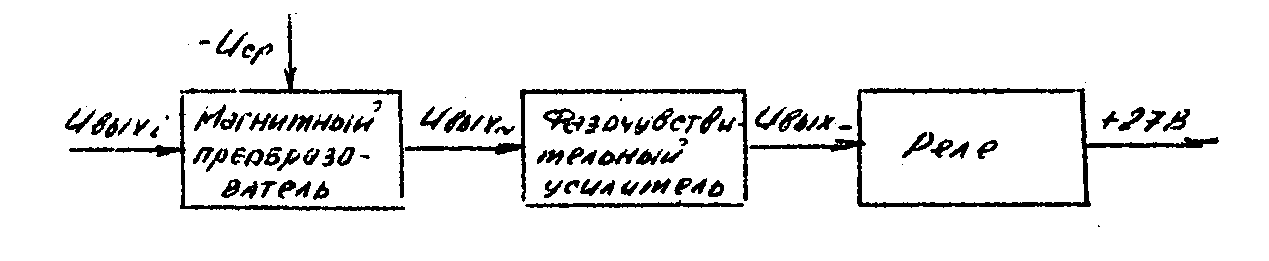 -Uср
Uвыхi
Магнитный
преобразо-
ватель
Uвых~
Фазочувстви-
тельный
усилитель
Uвых-
Реле
+27В